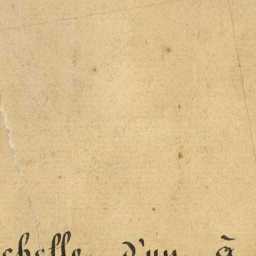 echelle d'un à